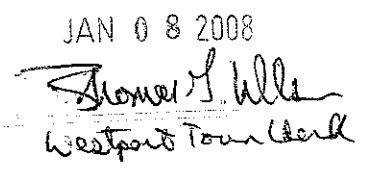 JAN 08 2008
Thomas J.
Westport Town Clerk